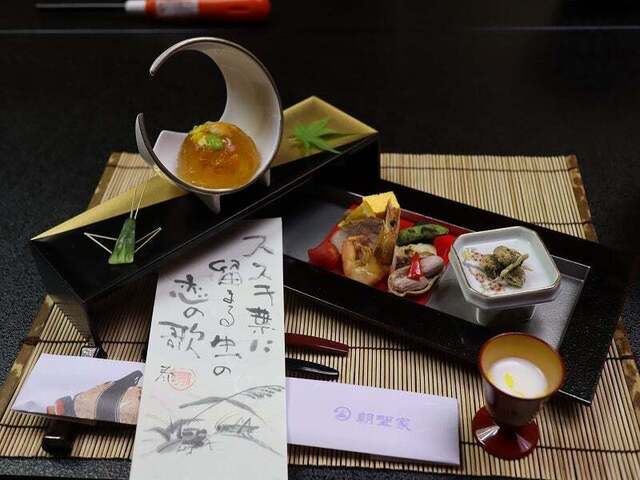 ススキ葉に
留まる虫の
恋の歌
朝野家